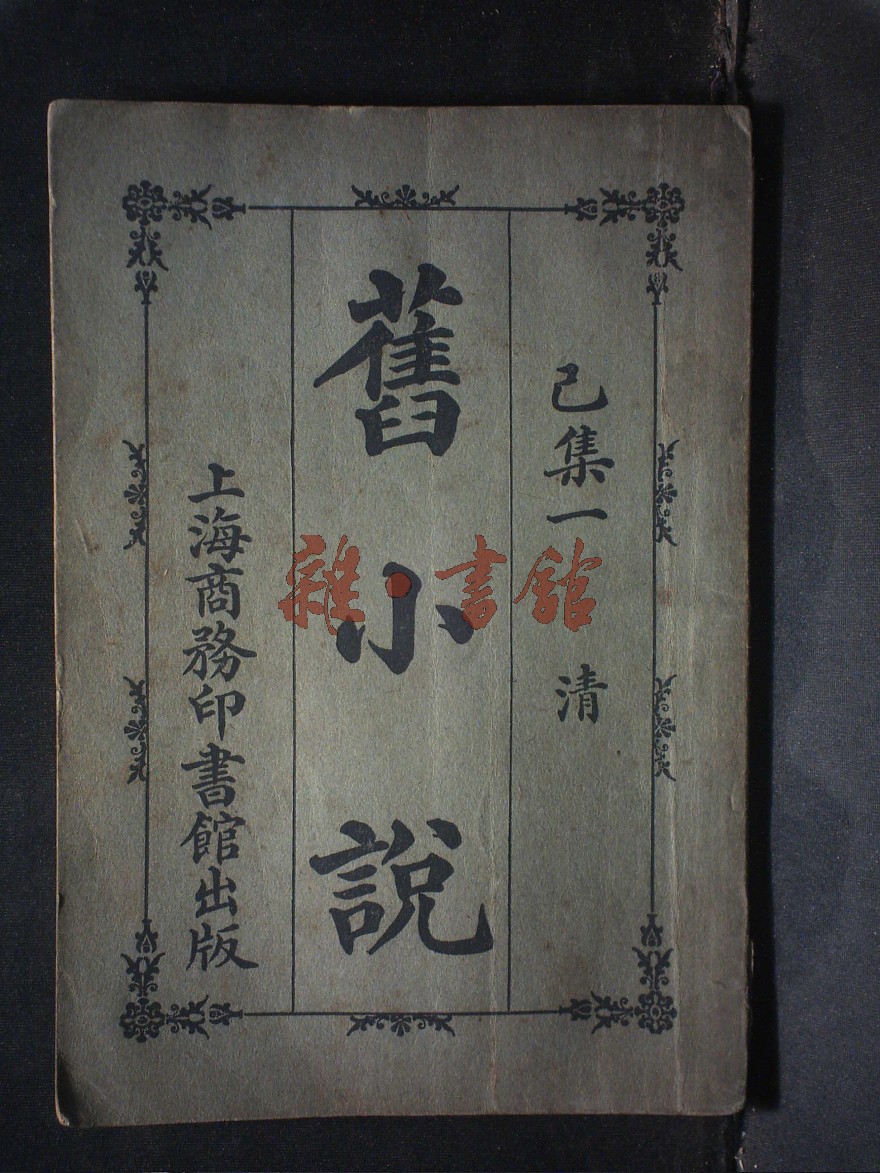 己集一 清
舊小說
上海商務印書館出版
雜·書館